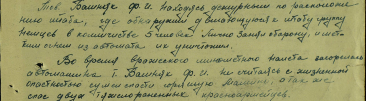 Тов. Вашняк Ф.И. находясь дежурным по расположе-
нию штаба, где обнаружил двигающуюся к штабу группу
немцев в количестве 5 человек. Лично занял оборону, и мет-
ким огнем из автомата их уничтожил.
Во время вражеского минометного налета загорелась
автомашина т. Вашняк Ф.И. не считаясь с жизненной
опасностью сумел спасти горящую машину, а так же
спас двух тяжелораненных красноармейцев.